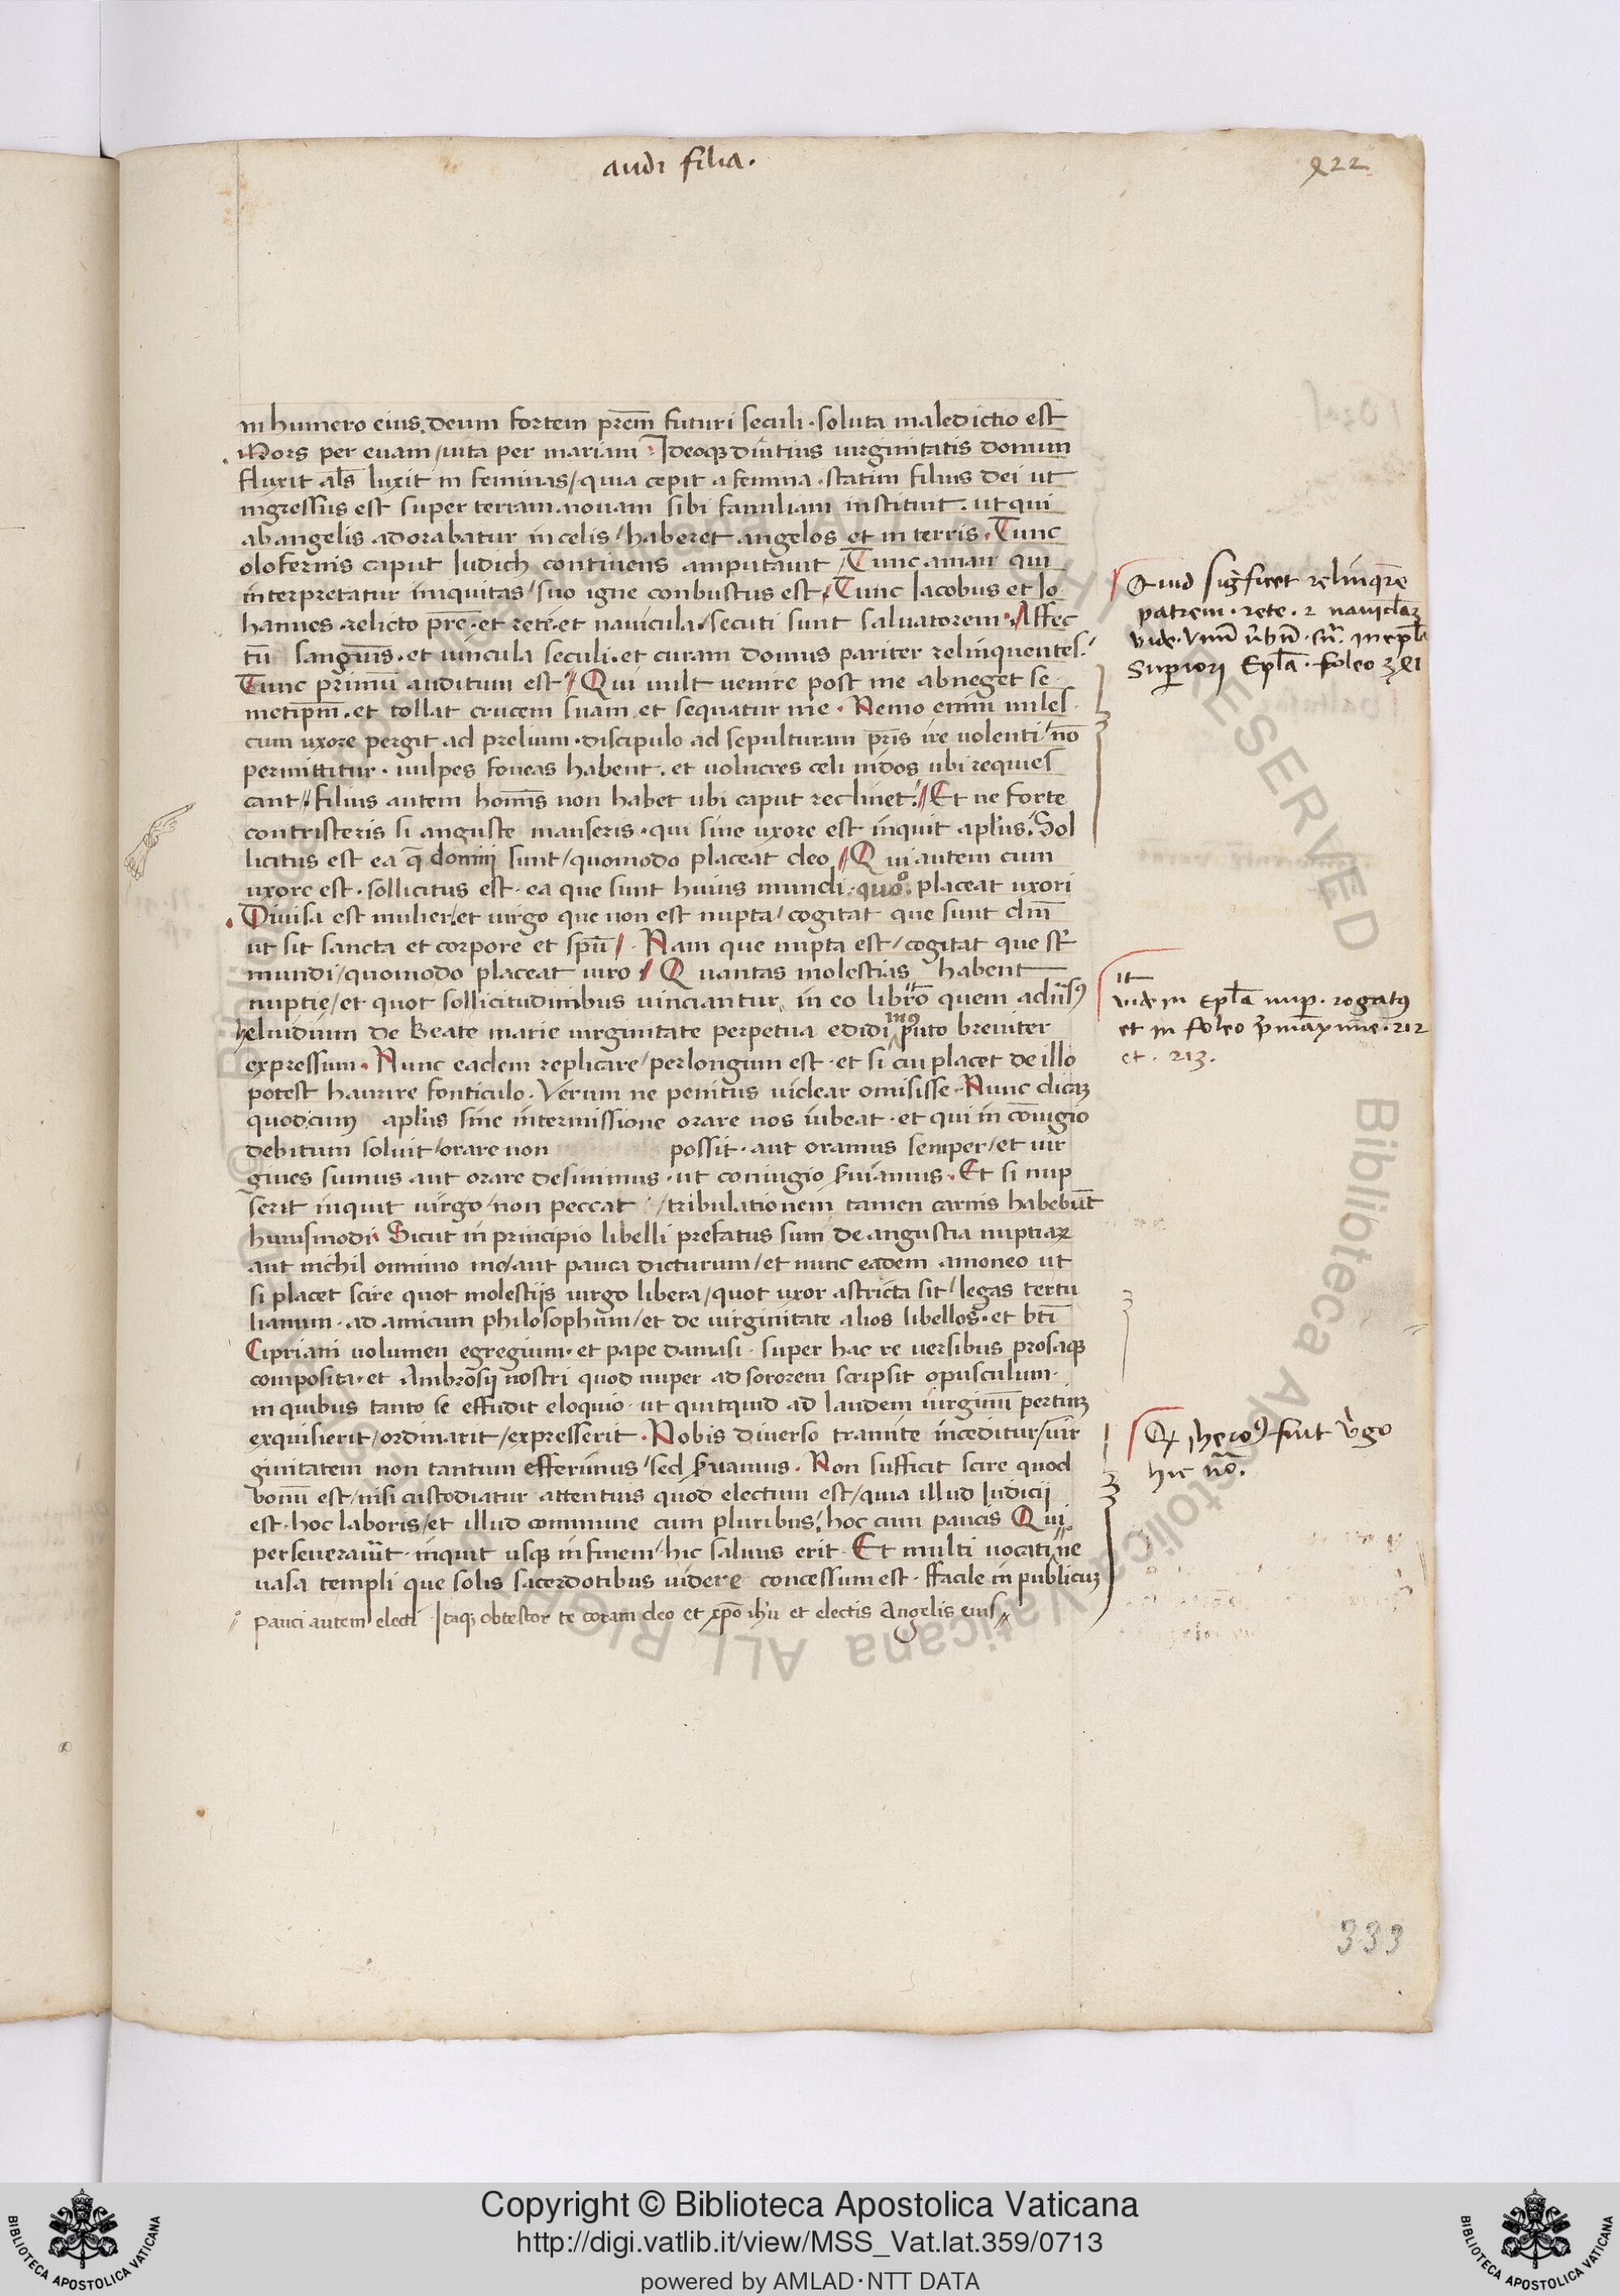 audi filia.
222
in humero eius. deum fortem prēm futuri seculi. soluta maledictio est
Mors per euam / uita per mariam. Ideoqꝫ ditius uirginitatis donum
fluxit als luxit in feminas / quia cepit a femina. statim filius dei ut
ingressus est super terram. nouam sibi familiam instituit. ut qui
ab angelis adorabatur in celis / haberet angelos et in terris. Tunc
olofernis caput Iudich continens amputauit / Tunc aman qui
interpretatur iniquitas / suo igne conbustus est. Tunc Iacobus et Io
hannes relicto prē. et rete. et nauicula / secuti sunt saluatorem. Affec
tū sanguis. et uincula seculi. et curam domus pariter relinquentes.
Tunc primū auditum est / Qui uult uenire post me abneget se
metipm̄. et tollat crucem suam et sequatur me. Nemo enim miles
cum uxore pergit ad prelium. discipulo ad sepulturam pris ire uolenti / nō
permittitur. uulpes foueas habent. et uolucres celi nidos ubi requies
cant / filius autem hominis non habet ubi caput reclinet. / Et ne forte
contristeris si anguste manseris. qui sine uxore est inquit aplus. Sol
licitus est ea q̄ domini sunt / quomodo placeat deo / Qui autem cum
uxore est. sollicitus est. ea que sunt huius mundi. quo° placeat uxori
Diuisa est mulier. et uirgo que non est nupta / cogitat que sunt dn̄i
ut sit sancta et corpore et spū / Nam que nupta est / cogitat que st̄
mundi / quomodo placeat uiro / Quantas molestias habent
nuptie / et quot sollicitudinibus uinciantur in eo libro quem aduersꝰ
heluidium de Beate marie uirginitate perpetua edidimꝰ puto breuiter
expressum. Nunc eadem replicare / perlongum est. et si cui placet de illo
potest haurire fonticulo. Verum ne penitus uidear omisisse. Nunc dicaꝫ
quod cum aplus sine intermissione orare nos iubeat. et qui in cōiugio
debitum soluit / orare non possit. aut oramus semper / et uir
gines sumus aut orare desinimus. ut coniugio seruiamus. Et si nup
serit inquit uirgo / non peccat / tribulationem tamen carnis habebūt
huiusmodi. Sicut in principio libelli prefatus sum de angustia nuptiaꝝ
aut nichil omnino me / aut pauca dicturum / et nunc eadem amoneo ut
si placet scire quot molestijs uirgo libera / quot uxor astricta sit / legas tertu
lianum. ad amicum philosophum / et de uirginitate alios libellos. et bt̄i
Cipriani uolumen egregium. et pape damasi. super hac re uersibus prosaqꝫ
composita. et Ambrosij nostri quod nuper ad sororem scripsit opusculum.
in quibus tanto se effudit eloquio. ut quitquid ad laudem uirginū pertinꝫ
exquisierit / ordinarit / expresserit. Nobis diuerso tramite inceditur / uir
ginitatem non tantum efferimus / sed seruamus. Non sufficit scire quod
bonū est / nisi custodiatur attentius quod electum est / quia illud Iudicij
est. hoc laboris / et illud commune cum pluribus. hoc cum paucis Qui
perseuerauit. inquit usqꝫ in finem / hic saluus erit. Et multi uocati ne
uasa templi que solis sacerdotibus uidere concessum est. ffacile in publicuꝫ
pauci autem electi. Itaqꝫ obtestor te coram deo et xp̄o ihū et electis Angelis eius
Quid significet relinqr̄e
patrem. rete. et nauiclaꝝ
Superiori Epl̄a. foleo
it
uide in Epl̄a nup. rogatꝰ
et in foleo 212
et. 213.
fuit v̄go
hic nō.
333
Copyright © Biblioteca Apostolica Vaticana
http://digi.vatlib.it/view/MSS_Vat.lat.359/0713
powered by AMLAD·NTT DATA
BIBLIOTECA APOSTOLICA VATICANA
BIBLIOTECA APOSTOLICA VATICANA